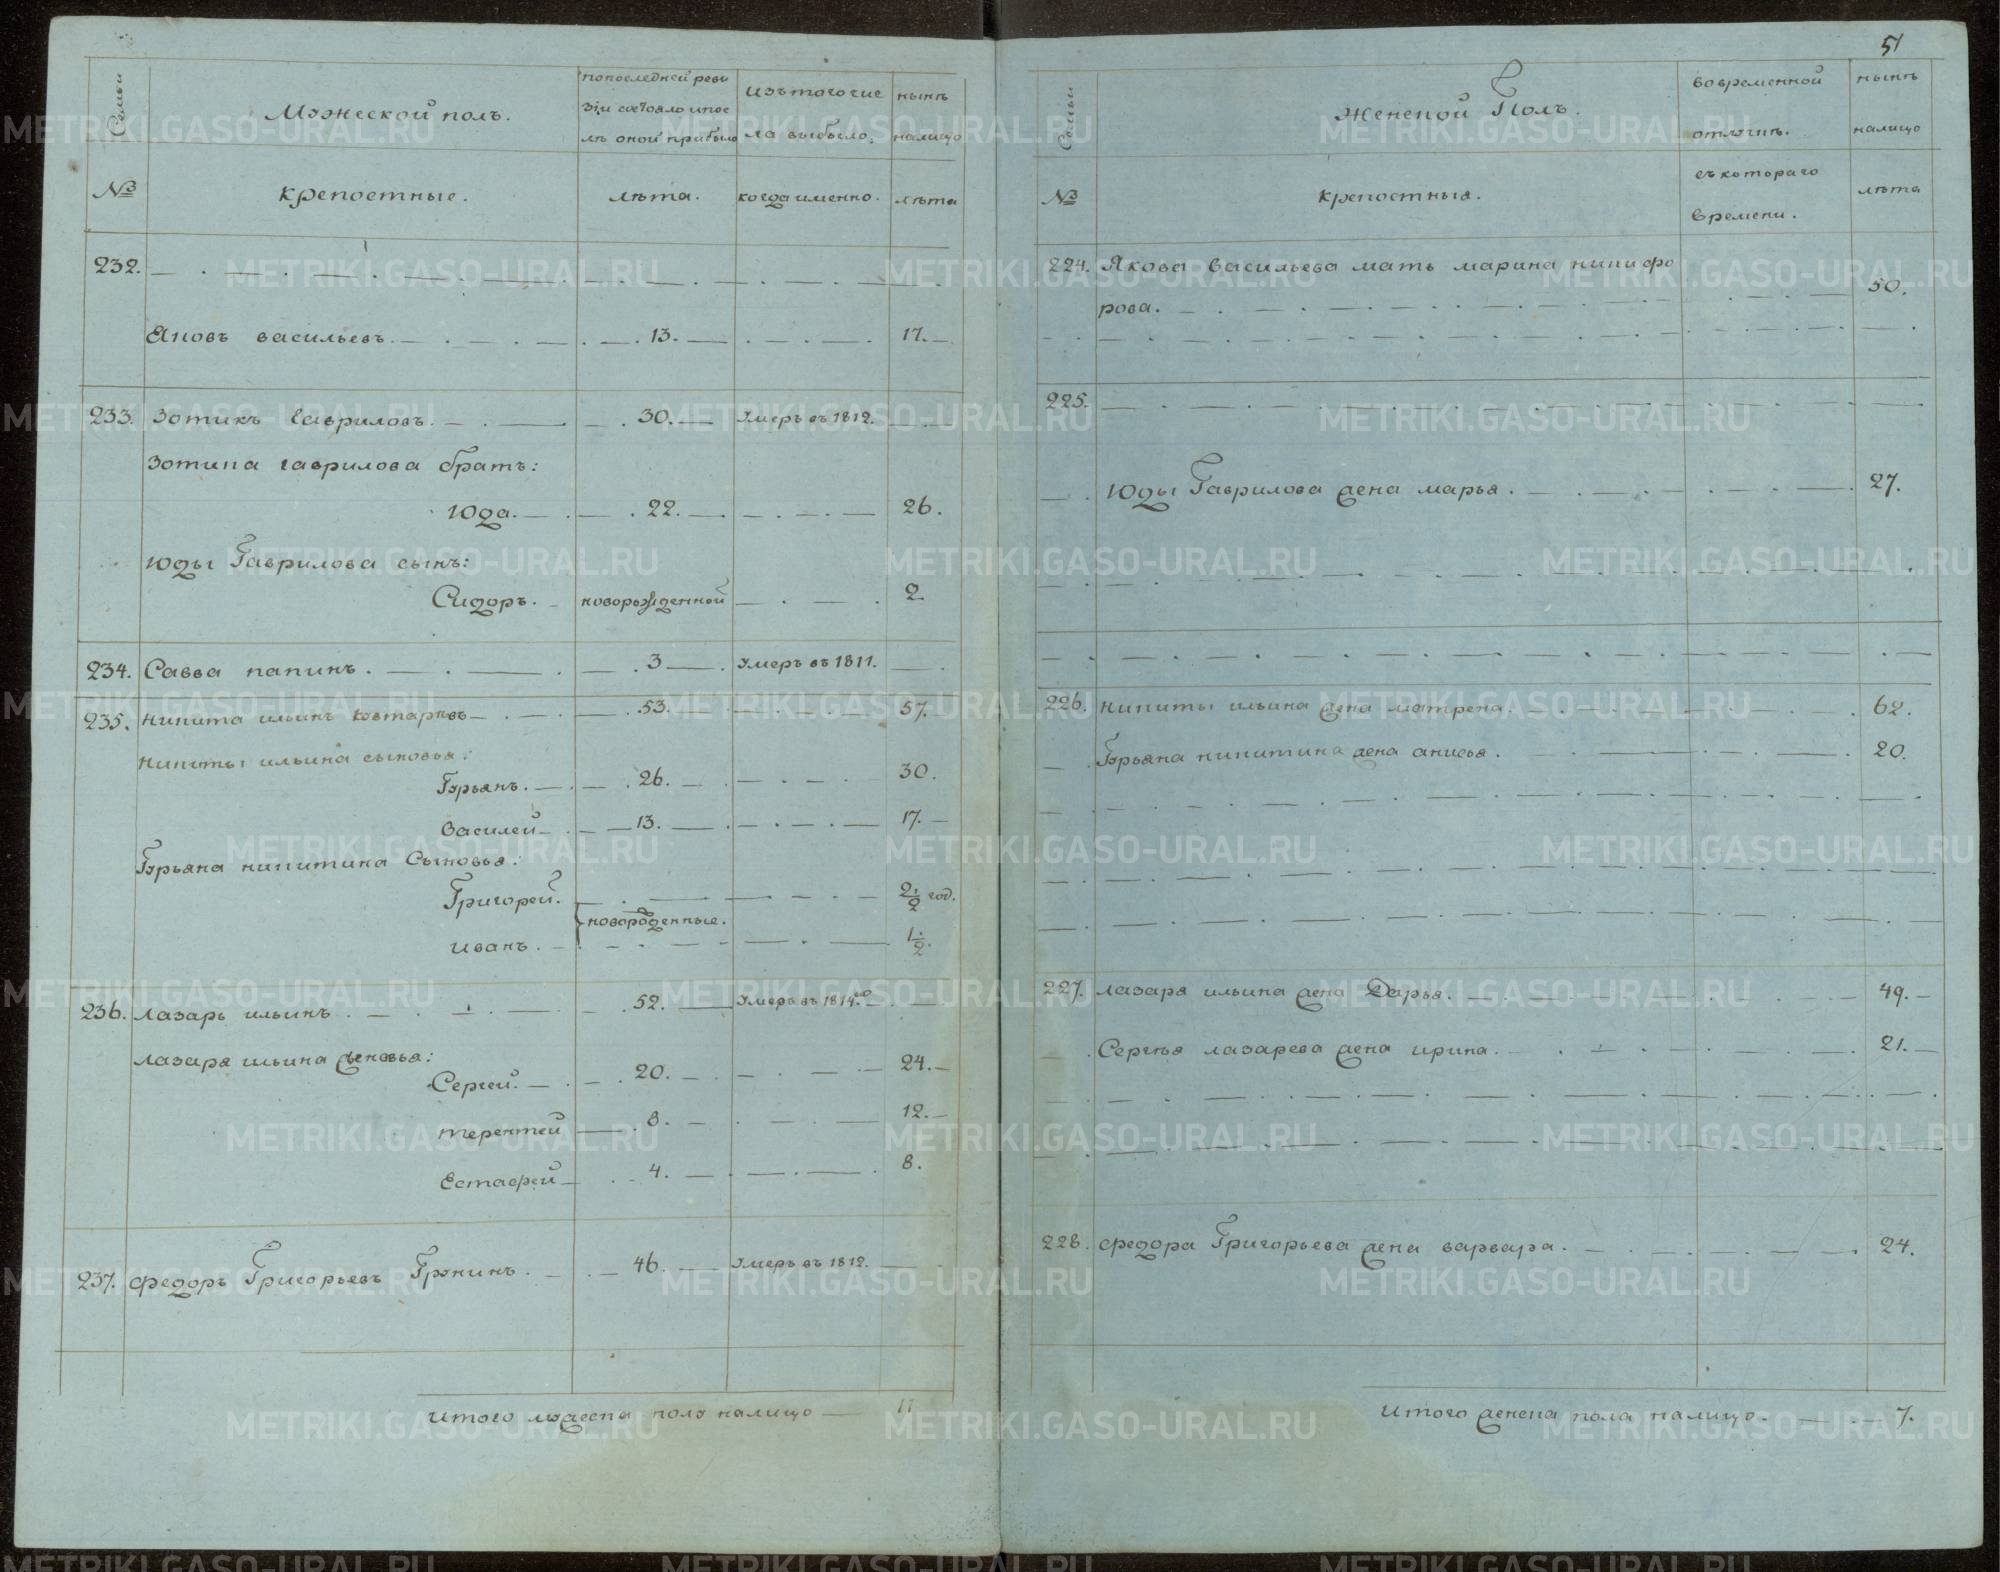 Семьи
№
Мужеской полъ.
крепостные.
попоследней реви
зіи состояло ипос
лѣ оной прибыло
лѣта.
изътогочис
ла выбыло,
когда именно.
нынѣ
налицо
лѣта
232.
Яковъ васильевъ. 13. 17.
233. Зотикъ Гавриловъ. 30. умеръ въ 1812.
Зотика гаврилова братъ:
Юда. 22. 26.
Юды Гаврилова сынъ:
Сидоръ. новорожденной 2.
234. Савва папинъ. 3 умеръ въ 1811.
235. Никита ильинъ 53. 57.
Никиты ильина сыновья:
Гурьянъ. 26. 30.
Василей 13. 17.
Гурьяна никитина Сыновья:
Григорей. 2 1/2 год.
новорожденные.
иванъ. 1 1/2.
236. Лазарь ильинъ. 52. умеръ въ 1814го
Лазаря ильина сыновья:
Сергей. 20. 24.
терентей 8. 12.
Естафей 4. 8.
237. Федоръ Григорьевъ 46. умеръ въ 1812.
итого мужеска полу налицо 11
51
Семьи
№
Женской Полъ.
крепостныя.
вовременной
отлучкѣ.
съкотораго
времени.
нынѣ
налицо
лѣта
224. Якова васильева мать марина никифо
рова. 50.
225.
Юды Гаврилова жена марья. 27.
226. никиты ильина жена матрена. 62.
Гурьяна никитина жена анисья. 20.
227. лазаря ильина жена Дарья. 49.
Сергѣя лазарева жена ирина. 21.
228. федора Григорьева жена варвара. 24.
Итого женска пола налицо. 7.
METRIKI.GASO-URAL.RU